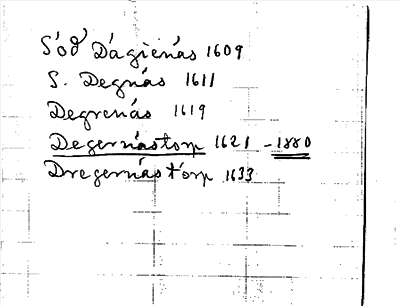 Söd Dägienäs 1609
S. Degnäs 1611
Degrenäs 1619
Degernästorp 1621 - 1880
Dregernästorp 1633